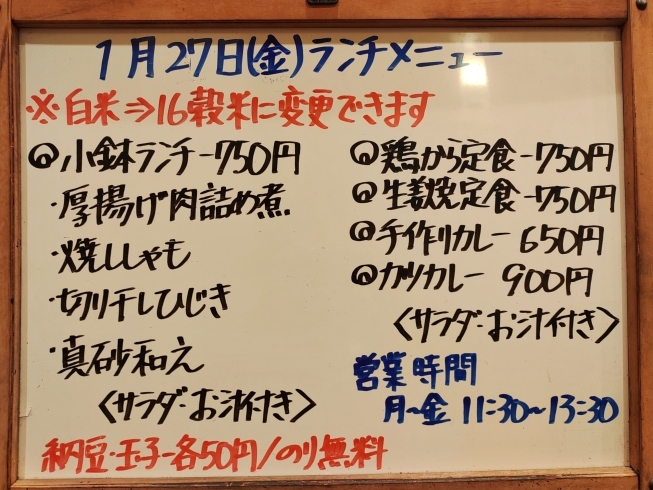 1月27日(金)ランチメニュー
※白米⇒16穀米に変更できます
◎小鉢ランチ-750円
・厚揚げ肉詰め煮
・焼ししゃも
・切り干しひじき
・真砂和え
〈サラダ・お汁付き〉
◎鶏から定食-750円
◎生姜焼定食-750円
◎手作りカレー 650円
◎カツカレー 900円
〈サラダ・お汁付き〉
営業時間
月~金 11:30~13:30
納豆・玉子-各50円/のり無料